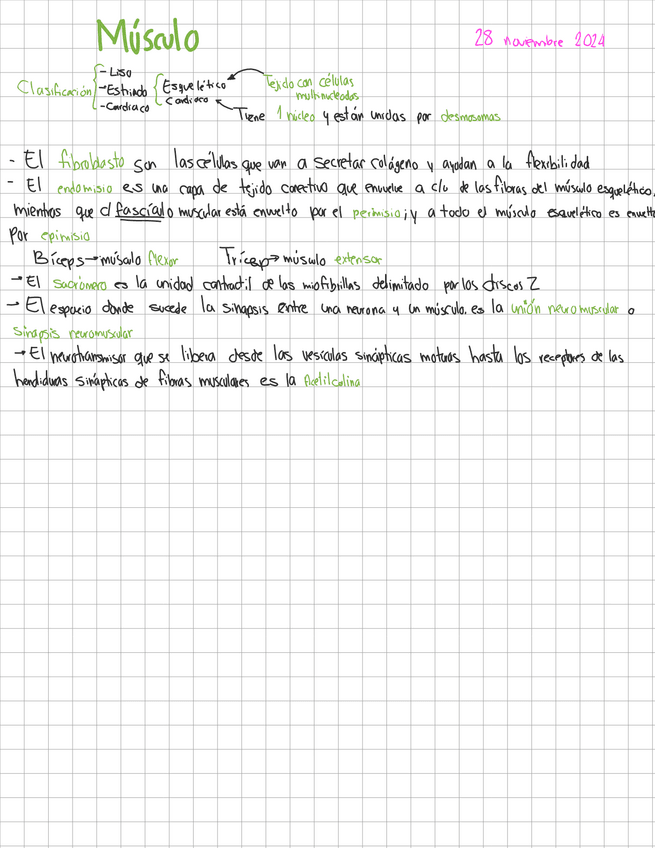 Músculo
28 novembre 2024
Clasificación
- Liso
- Estriado
- Cardíaco
Esquelético
Cardíaco
Tejido con células
multinucleadas
Tiene 1 núcleo y están unidas por desmosomas
- El fibroblasto son las células que van a secretar colágeno y ayudan a la flexibilidad
- El endomisio es una capa de tejido conectivo que envuelve a c/u de las fibras del músculo esquelético,
mientras que el fascículo muscular está envuelto por el perimisio; y a todo el músculo esquelético es envuelto
por epimisio
Bíceps → músculo flexor Tríceps → músculo extensor
→ El sacrómero es la unidad contráctil de las miofibrillas delimitado por los discos Z
→ El espacio donde sucede la sinapsis entre una neurona y un músculo. es la unión neuromuscular o
sinapsis neuromuscular
→ El neurotransmisor que se libera desde las vesículas sinápticas motoras hasta los receptores de las
hendiduras sinápticas de fibras musculares es la Acetilcolina